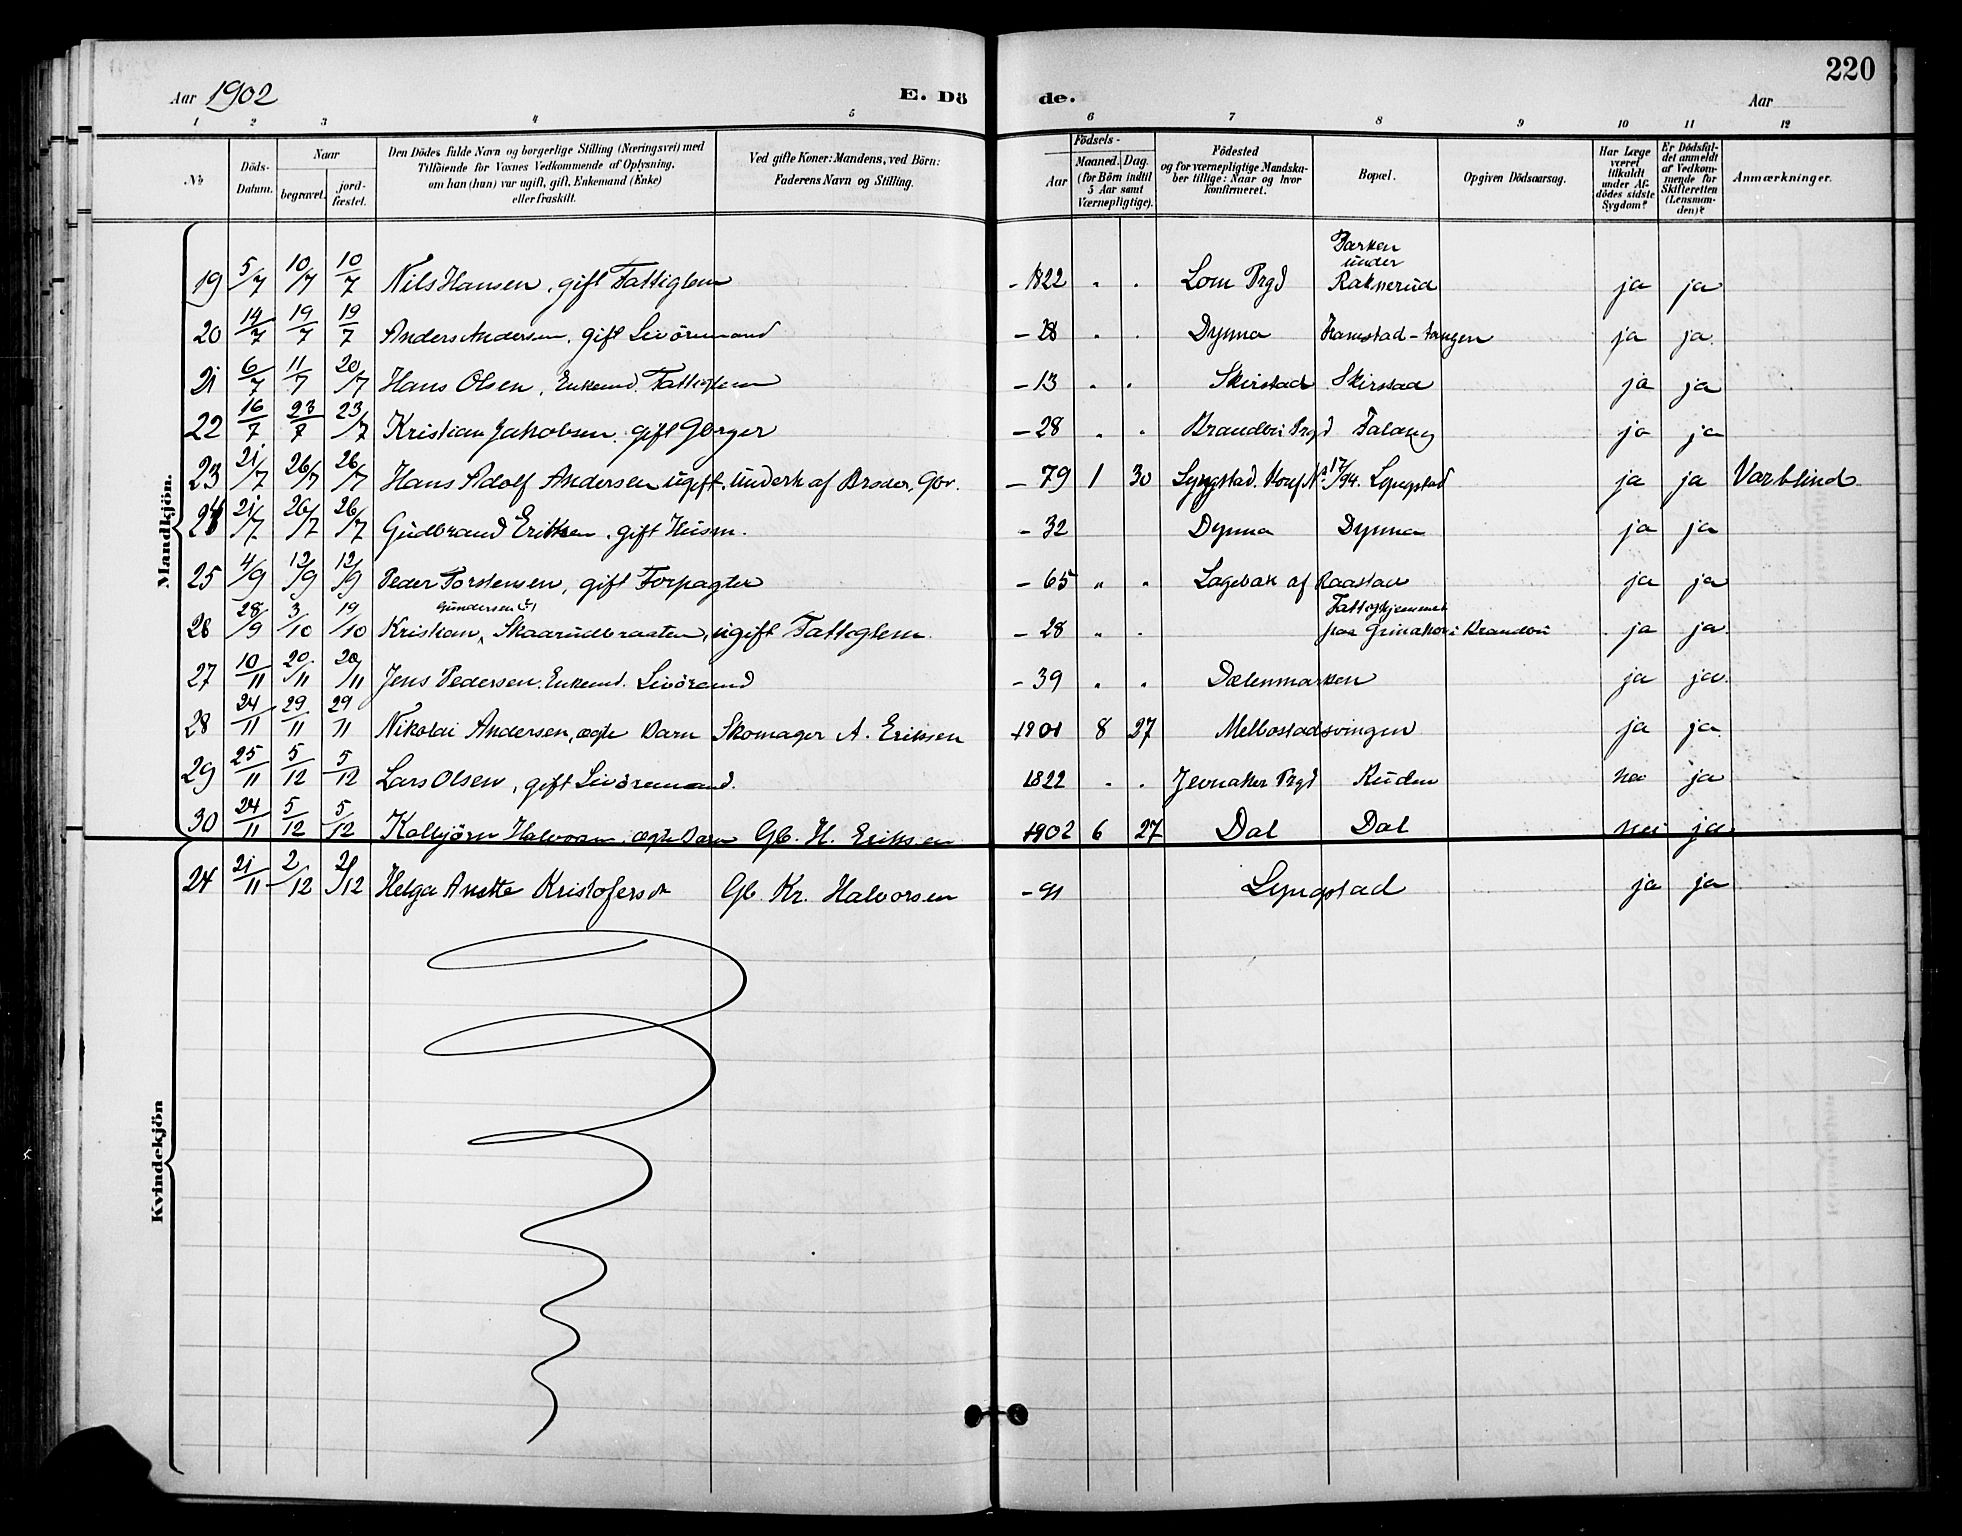 220
Aar 1902 E. Dö de. Aar
1 2 3 4 5 6 7 8 9 10 11 12
No
Döds-Datum.
Naar
begravet.
jord-fæstet.
Den Dödes fulde Navn og borgerlige Stilling (Næringsvei) med
Tilföiende for Voxnes Vedkommende af Oplysning,
om han (hun) var ugift, gift, Enkemand (Enke)
eller fraskilt.
Ved gifte Koner: Mandens, ved Börn:
Faderens Navn og Stilling.
Födsels-
Aar
Maaned. Dag.
(for Börn indtil
5 Aar samt
Værnepligtige).
Födested
og for værnepligtige Mandska-
ber tillige: Naar og hvor
konfirmeret.
Bopæl.
Opgiven Dödsaarsag.
Har Læge
været
tilkaldt
under Af-
dödes sidste
Sygdom?
Er Dödsfal-
det anmeldt
af Vedkom-
mende for
Skifteretten
(Lensman-
den)?
Anmærkninger.
Mandkjön.
19 5/7 10/7 10/7 Nils Hansen, gift Fattiglem - 1822 " " Lom Prgd under Raknerud ja ja
20 14/7 19/7 19/7 Anders Andersen, gift Livöremand - 28 " " Dynna Framstad-tangen ja ja
21 6/7 11/7 20/7 Hans Olsen, Enkemd. Fattiglem - 13 " " Skirstad Skirstad ja ja
22 16/7 23/7 23/7 Kristian Jakobsen, gift - 28 " " Brandbu Prgd Falang ja ja
23 21/7 26/7 26/7 Hans Adolf Andersen ugift, underh af Broder, Gbr. - 79 1 30 Lyngstad. Konf. 17/94. Lyngstad ja ja Var blind
24 21/7 26/7 26/7 Gudbrand Eriksen, gift Husm. - 32 Dynna Dynna ja ja
25 4/9 12/9 12/9 Peder Torstensen, gift Forpagter - 65 " " Lagebak af Raastad ja ja
26 28/9 3/10 19/10 Kristian Gundersen Skaarudbraaten, ugift Fattiglem - 28 " " Fattighjemmet paa Grinaker i Brandbu ja ja
27 10/11 20/11 20/11 Jens Pedersen, Enkemd. Livöremd - 39 " " Dælenmarken ja ja
28 24/11 29/11 29/11 Nikolai Andersen, ægte Barn Skomager A. Eriksen 1901 8 27 Melbostadsvingen ja ja
29 25/11 5/12 5/12 Lars Olsen, gift Livöremand. 1822 " " Jevnaker Prgd Ruden nei ja
30 24/11 5/12 5/12 Kolbjörn Halvorsen, ægte Barn Gb. H. Eriksen 1902 6 27 Dal Dal nei ja
Kvindekjön
24 21/11 2/12 21/12 Helga Anette Kristofersdt Gb. Kr. Halvorsen - 91 Lyngstad ja ja